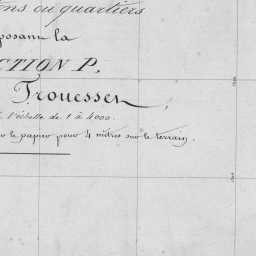 ons ou quartiers
posant la
CTION P,
Trouessen
l'échelle de 1 à 4000.
le papier pour 4 mètres sur le terrain.